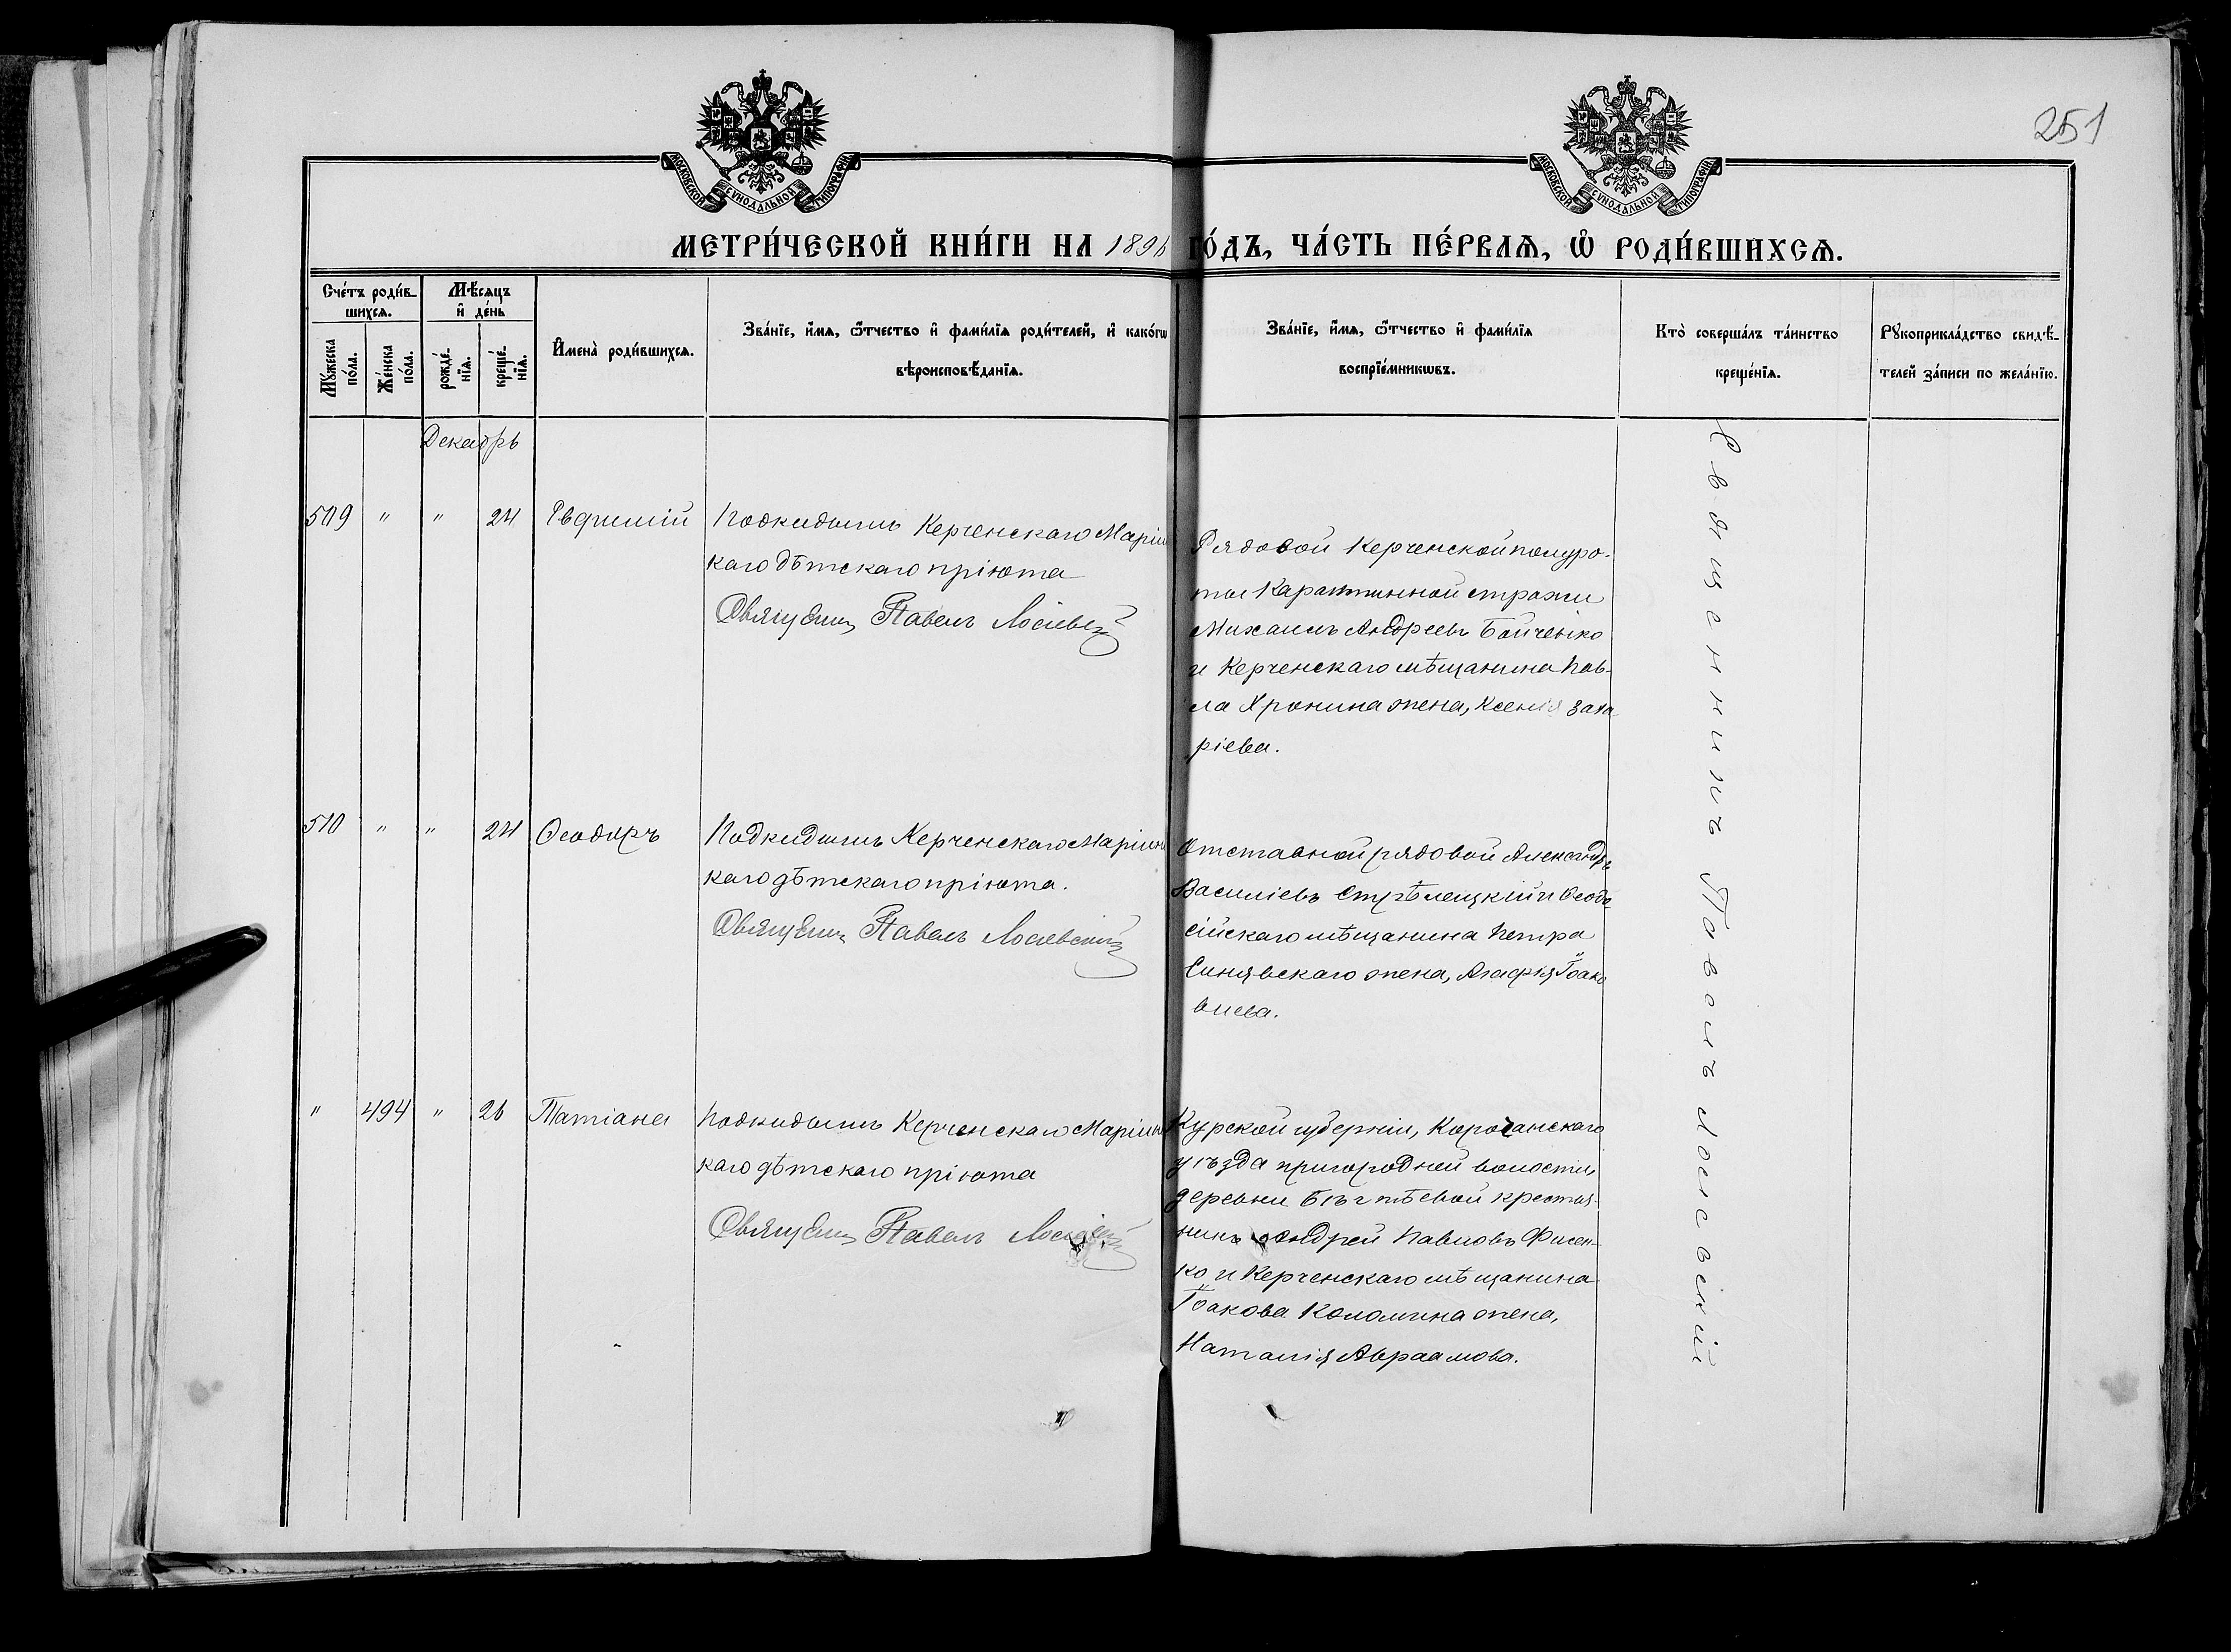 251
МОСКОВСКОЙ СУНОДАЛЬНОЙ ТИПОГРАФІИ
МОСКОВСКОЙ СУНОДАЛЬНОЙ ТИПОГРАФІИ
МЕТРИ́ЧЕСКОЙ КНИ́ГИ НА 1896 ГО́ДЪ, ЧА́СТЬ ПЕ́РВАѦ, Ѡ҆ РОДИ́ВШИХСѦ.
Сче́тъ роди́в-
шихсѧ.
Му́жеска
по́ла.
Же́нска
по́ла.
Мѣ́сѧцъ
и҆ де́нь
рожде́-
нїѧ.
креще́-
нїѧ.
И҆мена̀ роди́вшихсѧ.
Зва́нїе, и҆́мѧ, ѻ҆́тчество и҆ фами́лїѧ роди́телей, и҆ како́гѡ
вѣроисповѣ́данїѧ.
Зва́нїе, и҆́мѧ, ѻ҆́тчество и҆ фами́лїѧ
воспрїе́мникѡвъ.
Кто̀ соверша́лъ та́инство
креще́нїѧ.
Рꙋкоприкла́дство свидѣ́-
телей за́писи по жела́нїю.
Декабрь
509 " " 24 Евфимій
Подкидышъ Керченскаго Маріин
каго дѣтскаго пріюта
Священ Павелъ Лосіевскій
Рядовой Керченской полуро-
ты Карантинной стражи
Михаилъ Андреевъ Бойченко
и Керченскаго мѣщанина Пав-
ла Хронина жена, Ксенія Заха
ріева.
510 " " 24 Ѳеодоръ
Подкидышъ Керченскаго Маріин
каго дѣтскаго пріюта.
Священ Павелъ Лосіевскій
Отставной рядовой Александръ
Василіевъ Стрѣлецкій и Ѳеодо
сійскаго мѣщанина Петра
Синявскаго жена, Агафія Іоако
влева.
" 494 " 26 Татіана
Подкидышъ Керченскаго Маріин
каго дѣтскаго пріюта
Священ Павелъ Лосіевскій
Курской губерніи, Корочанскаго
уѣзда пригородней волости,
деревни крестья-
нинъ Андрей Павловъ Фисен-
ко и Керченскаго мѣщанина
Іоакова Коломина жена,
Наталія Авраамова.
Священникъ Павелъ Лосіевскій